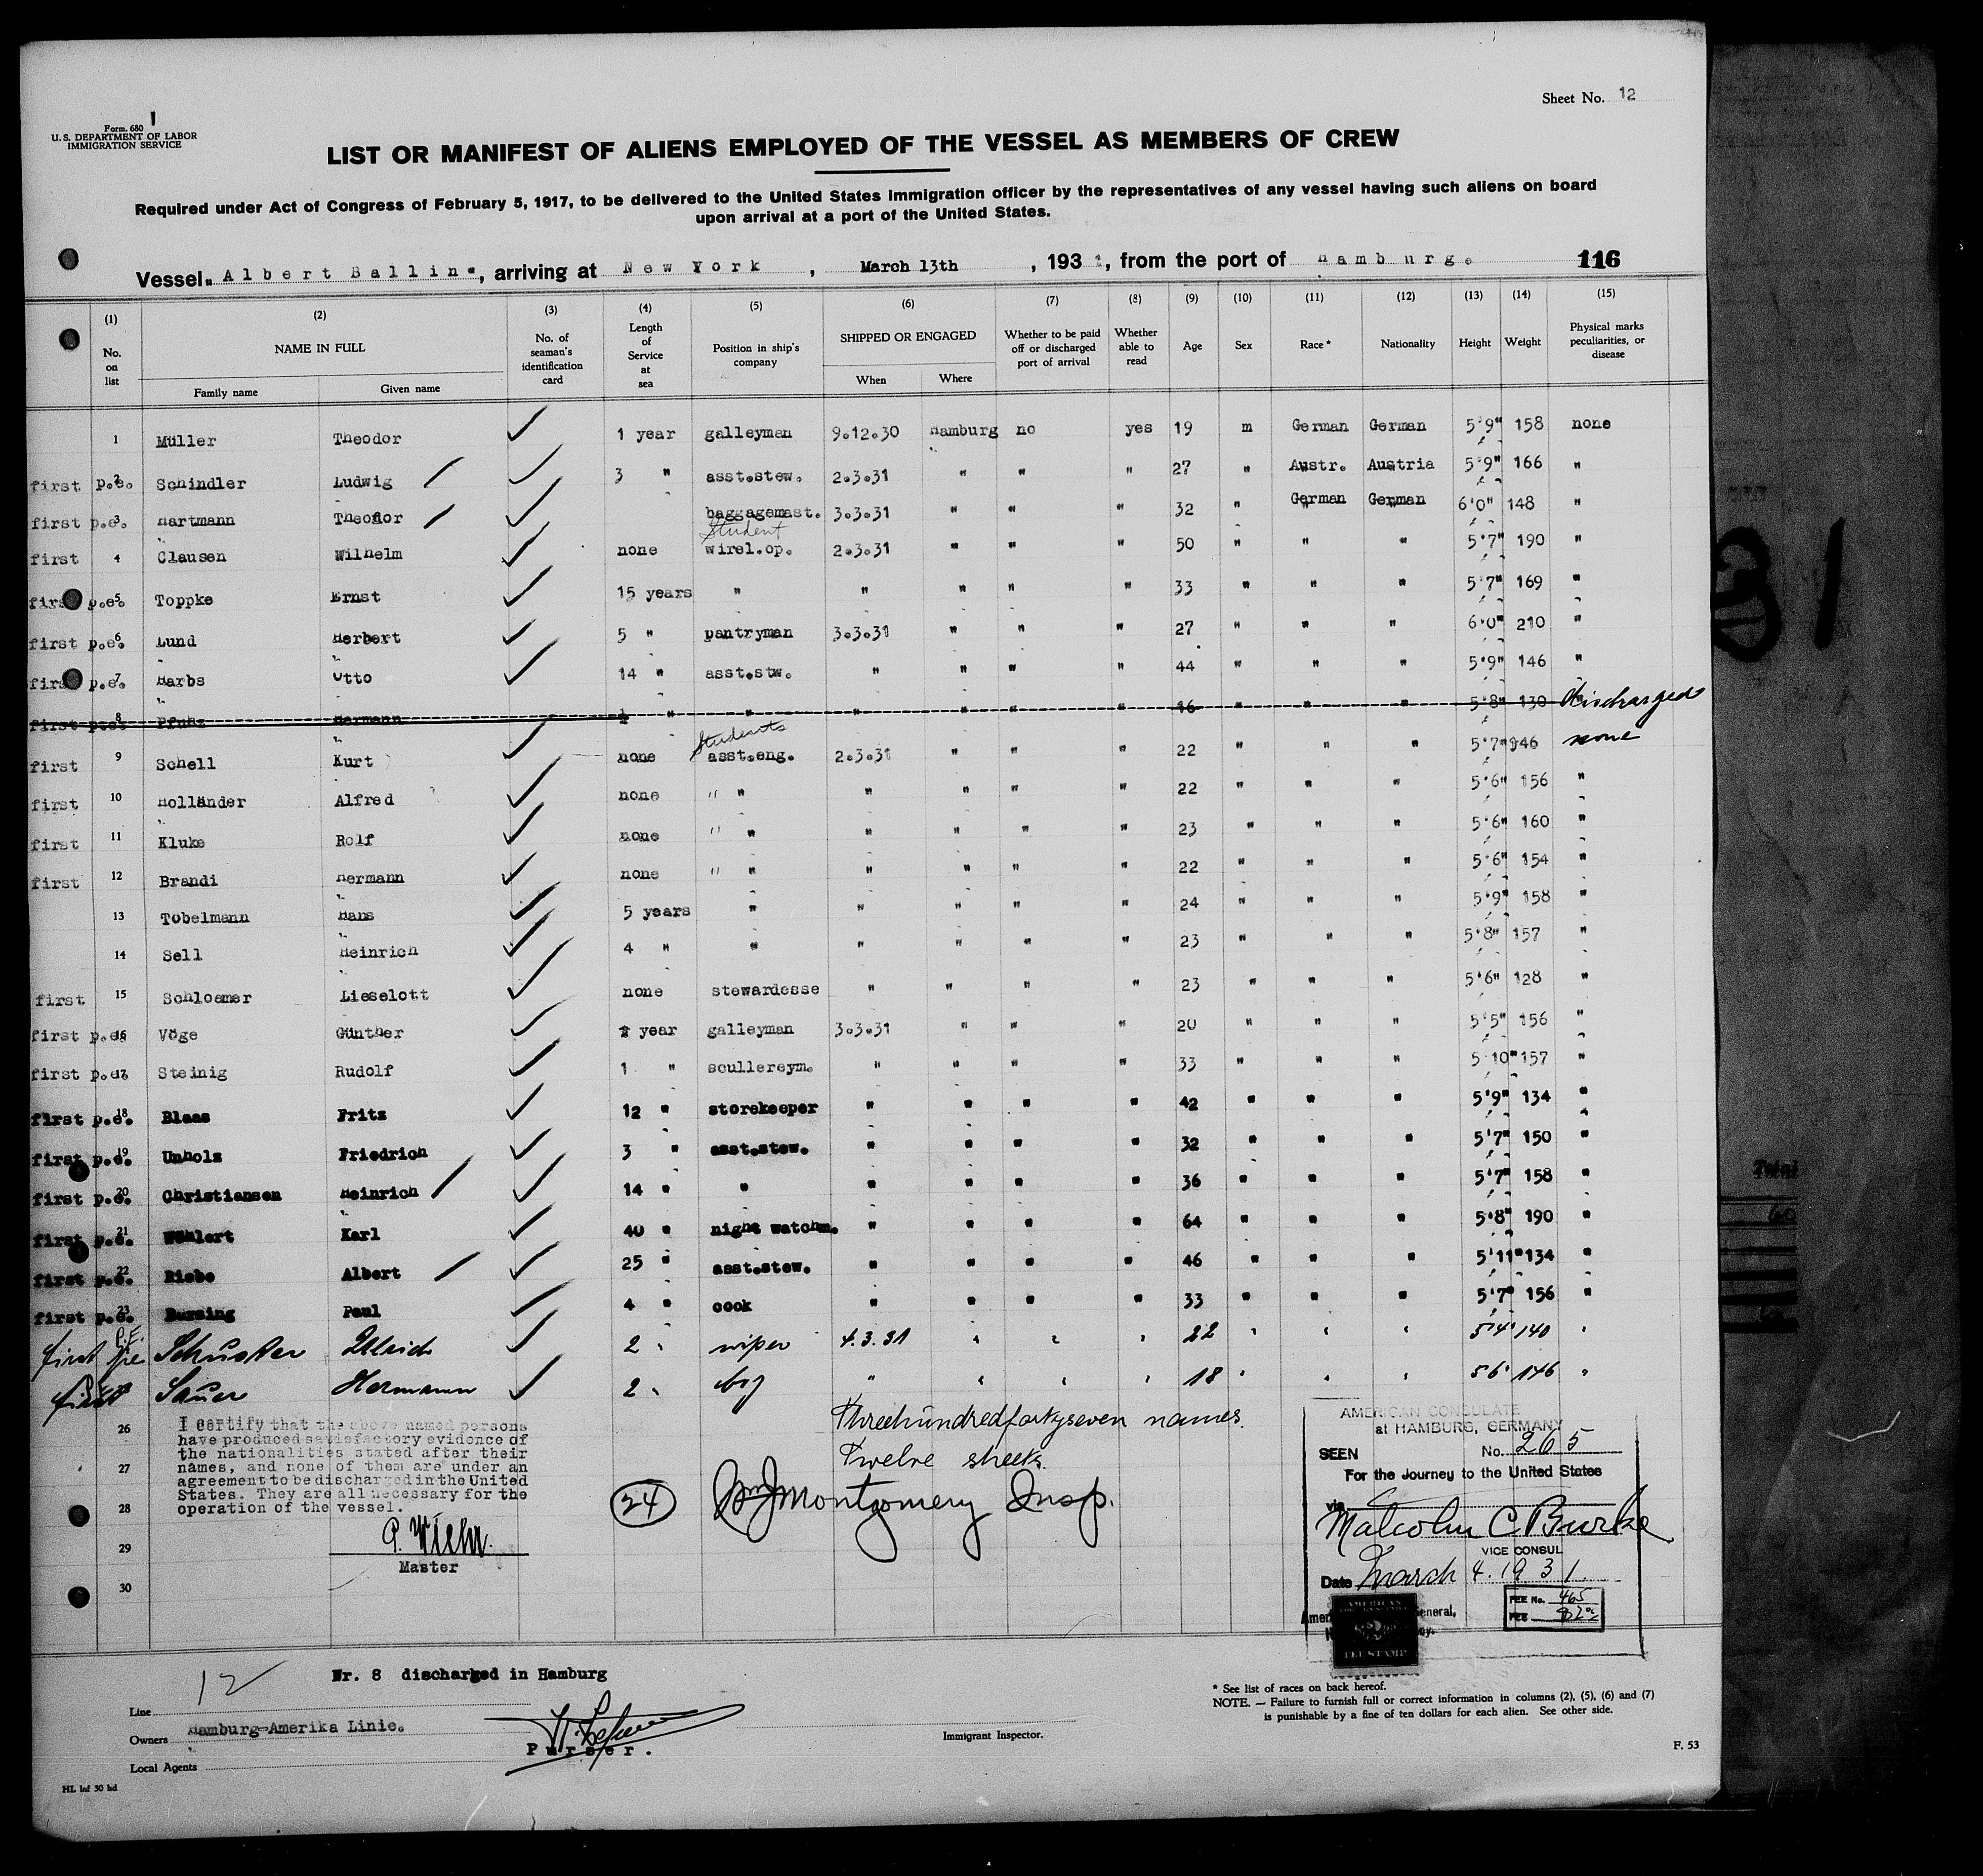 Sheet No. 12
Form. 680 1
U.S. DEPARTMENT OF LABOR
IMMIGRATION SERVICE
LIST OR MANIFEST OF ALIENS EMPLOYED OF THE VESSEL AS MEMBERS OF CREW
Required under Act of Congress of February 5, 1917, to be delivered to the United States Immigration officer by the representatives of any vessel having such aliens on board
upon arrival at a port of the United States.
Vessel. Albert Ballin, arriving at New York, March 13th, 1931, from the port of Hamburg. 116
(1) (2) (3) (4) (5) (6) (7) (8) (9) (10) (11) (12) (13) (14) (15)
No. on list NAME IN FULL No. of seaman's identification card Length of Service at sea Position in ship's company SHIPPED OR ENGAGED Whether to be paid off or discharged port of arrival Whether able to read Age Sex Race* Nationality Height Weight Physical marks peculiarities, or disease
Family name Given name When Where
1 Müller Theodor 1 year galleyman 9.12.30 Hamburg no yes 19 m German German 5'9" 158 none
first p.e. 2 Schindler Ludwig 3 " asst.stew. 2.3.31 " " " 27 " Austr. Austria 5'9" 166 "
first p.e. 3 Hartmann Theodor baggagemast. 3.3.31 " " " 32 " German German 6'0" 148 "
Student
first 4 Clausen Wilhelm none wirel.op. 2.3.31 " " " 50 " " " 5'7" 190 "
first p.e. 5 Toppke Ernst 15 years " " " " " 33 " " " 5'7" 169 "
first p.e. 6 Lund Herbert 5 " pantryman 3.3.31 " " " 27 " " " 6'0" 210 "
first p.e. 7 Harbs Otto 14 " asst.stw. " " " " 44 " " " 5'9" 146 "
first p.e. 8 Hermann " " " " " " 16 " " " 5'8" 130 discharged
Students
first 9 Schell Kurt none asst.eng. 2.3.31 " " " 22 " " " 5'7" 146 none
first 10 Holländer Alfred none " " " " " " 22 " " " 5'6" 156 "
first 11 Kluke Rolf none " " " " " " 23 " " " 5'6" 160 "
first 12 Brandi Hermann none " " " " " " 22 " " " 5'6" 154 "
13 Tobelmann Hans 5 years " " " " " 24 " " " 5'9" 158 "
14 Sell Heinrich 4 " " " " " " 23 " " " 5'8" 157 "
first 15 Schloemer Lieselott none stewardesse " " " " 23 " " " 5'6" 128 "
first p.e. 16 Vöge Günther year galleyman 3.3.31 " " " 20 " " " 5'5" 156 "
first p.e. 17 Steinig Rudolf 1 " scullereym. " " " " 33 " " " 5'10" 157 "
first p.e. 18 Blaas Fritz 12 " storekeeper " " " " 42 " " " 5'9" 134 "
first p.e. 19 Unholz Friedrich 3 " asst.stew. " " " " 32 " " " 5'7" 150 "
first p.e. 20 Christiansen Heinrich 14 " " " " " " 36 " " " 5'7" 158 "
first p.e. 21 Wöhlert Karl 40 " night watchm. " " " " 64 " " " 5'8" 190 "
first p.e. 22 Riebe Albert 25 " asst.stew. " " " " 46 " " " 5'11" 134 "
first p.e. 23 Bursing Paul 4 " cook " " " " 33 " " " 5'7" 156 "
P.E.
first pe Schuster Ulrich 2 " wiper 4.3.31 " " " 22 " " " 5'4" 140 "
first Sauer Hermann 2 " boy " " " " 18 " " " 5'6" 146 "
26 27 28 29 30
I certify that the above named persons
have produced satisfactory evidence of
the nationalities stated after their
names, and none of them are under an
agreement to be discharged in the United
States. They are all necessary for the
operation of the vessel.
Master
Threehundredfortyseven names.
Twelve sheets.
24 Montgomery Insp.
AMERICAN CONSULATE
at HAMBURG, GERMANY
SEEN No. 265
For the Journey to the United States
via
Malcolm C Burke
VICE CONSUL
Date March 4. 1931.
FEE No. 465
FEE
AMERICAN
FEE STAMP
General,
12
Nr. 8 discharged in Hamburg
Line
Owners Hamburg-Amerika Linie.
Local Agents
Purser.
Immigrant Inspector.
* See list of races on back hereof.
NOTE. — Failure to furnish full or correct information in columns (2), (5), (6) and (7)
is punishable by a fine of ten dollars for each alien. See other side.
F. 53
HL Inf 30 hd
31
Total
60